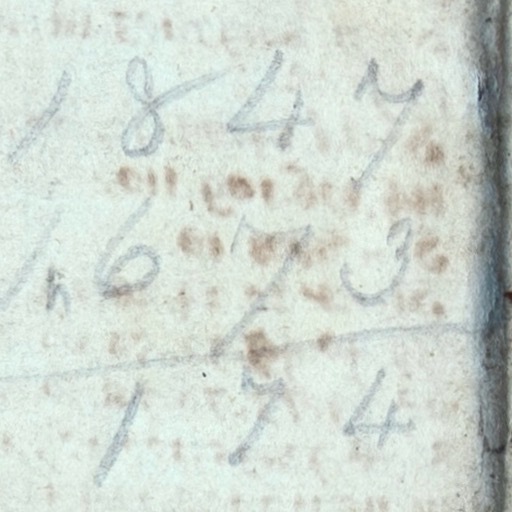 1847
1673
174